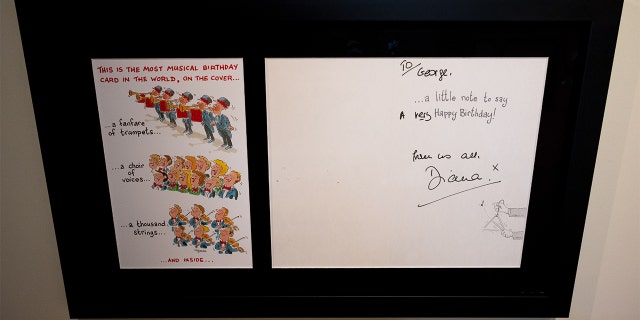 THIS IS THE MOST MUSICAL BIRTHDAY
CARD IN THE WORLD, ON THE COVER...
...a fanfare
of trumpets...
...a choir
of voices...
...a thousand
strings...
...AND INSIDE....
TO George.
...a little note to say
A very Happy Birthday!
from us all.
Diana. x